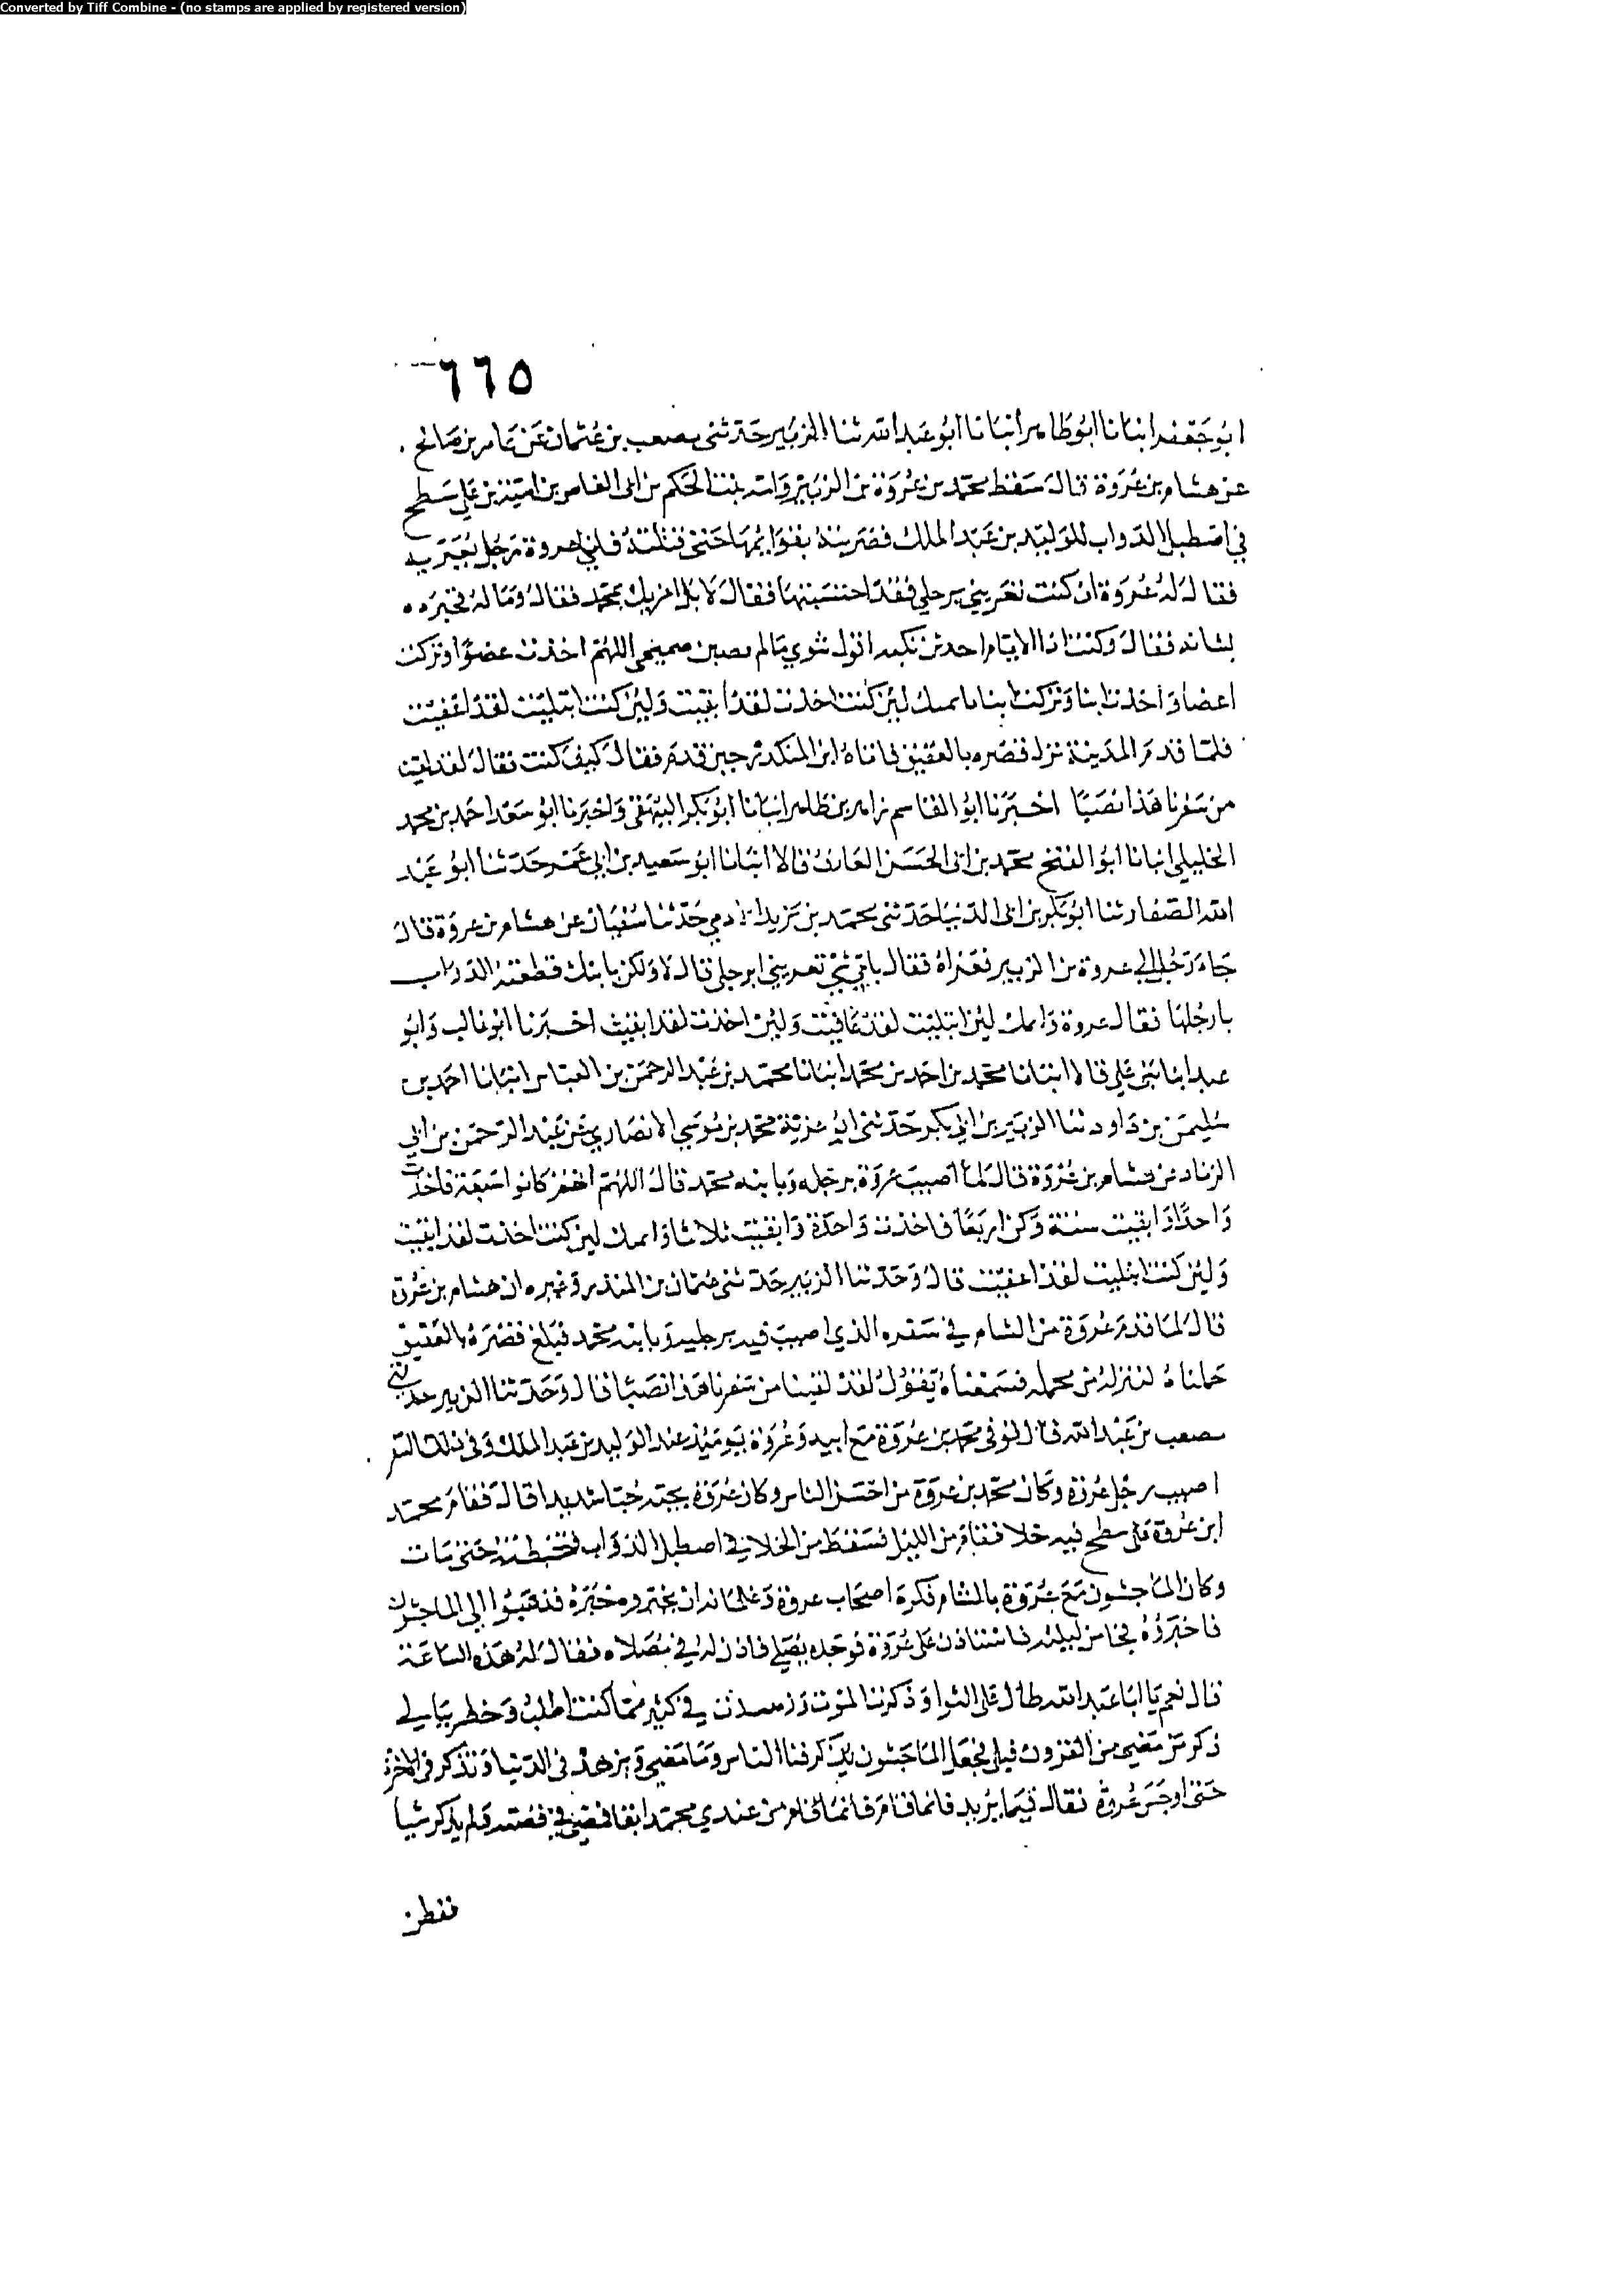 Converted by Tiff Combine - (no stamps are applied by registered version)
٦٦٥
ابو جعفر انبانا ابو طاهر انبانا ابو عبد الله ثنا الزبير حدثني مصعب بن عثمان عن عامر بن صالح
عن هشام بن عروة قال سقط محمد بن عروة بن الزبير وامه بنت الحكم بن ابي العاص بن امية من على سطح
في اصطبل الدواب للوليد بن عبد الملك فضربته بقوائمها حتى قتلته فاتى عروة رجل يعزيه
فقال له عروة ان كنت تعزيني برجلي فقد احتسبتها فقال لا بل اعزيك بمحمد فقال وماله فخبره
بشانه فقال وكنت اذا الايام احدثن نكبة اقول شوى مالم يصبن صميمي اللهم اخذت عضوا وتركت
اعضا واخذت ابنا وتركت ابنا لئن كنت اخذت لقد ابقيت ولئن كنت ابتليت لقد اعفيت
فلما قدم المدينة نزل قصره بالعقيق فاتاه ابن المنكدر حين قدم فقال كيف كنت فقال لقد لقينا
من سفرنا هذا نصبا اخبرنا ابو القاسم زاهر بن طاهر انبانا ابو بكر البيهقي واخبرنا ابو سعد احمد بن محمد
الخليلي انبانا ابو الفتح محمد بن ابي الحسن قالا انبانا ابو سعيد بن ابي عمرو حدثنا ابو عبد
الله الصفار ثنا ابو بكر بن ابي الدنيا حدثني محمد بن يزيد الادمي حدثنا سفيان عن هشام بن عروة قال
جاء رجل الى عروة بن الزبير فعزاه فقال باي شي تعزيني ابرجلي قال لا ولكن بابنك قطعته الدواب
بارجلها فقال عروة وايمك لئن ابتليت لقد عافيت ولئن اخذت لقد ابقيت اخبرنا ابو غالب وابو
عبد ابنا بني علي قالا انبانا محمد بن احمد بن محمد انبانا محمد بن عبد الرحمن بن العباس انبانا احمد بن
سليمن بن داود ثنا الزبير بن ابي بكر حدثني ابو غزية محمد بن موسى الانصاري عن عبد الرحمن بن ابي
الزناد عن هشام بن عروة قال لما اصيب عروة برجله وبابنه محمد قال اللهم انهم كانوا سبعة فاخذت
واحدا وابقيت ستة وكن اربعا فاخذت واحدة وابقيت ثلاثا وايمك لئن كنت اخذت لقد ابقيت
ولئن كنت ابتليت لقد اعفيت قال وحدثنا الزبير حدثني عثمان بن المنذر وغيره ان هشام بن عروة
قال لما قدم عروة من الشام في سفره الذي اصيب فيه برجليه وبابنه محمد فبلغ قصره بالعقيق
حملناه لننزله من محمله فسمعناه يقول لقد لقينا من سفرنا هذا نصبا قال وحدثنا الزبير حدثني
مصعب بن عبد الله قال توفي محمد بن عروة مع ابيه وعروة يومئذ عند الوليد بن عبد الملك وفي ذلك السفر
اصيب برجل عروة وكان محمد بن عروة من احسن الناس وكان عروة يحبه حبا شديدا قال فقام محمد
ابن عروة على سطح فيه خلا فقام من الليل فسقط من الخلا في اصطبل الدواب فتخبطته حتى مات
وكان الماجشون مع عروة بالشام فكره اصحاب عروة وغلمانه ان يخبروه خبره فذهبوا الى الماجشون
فاخبروه فجا من ليلته فاستاذن على عروة فوجده يصلي فاذن له في مصلاه فقال له هذه الساعة
قال نعم يا ابا عبد الله طال علي الثوا وذكرت الموت وزهدت في كثير مما كنت اطلب وخطر ببالي
ذكر من مضى من القرون قبلي فجعل الماجشون يذكر فنا الناس وما مضى ويزهد في الدنيا ويذكر في الاخرة
حتى اوجس عروة فقال فيما يريد فانما قام من عندي محمد انفا فمضى في قصته ولم يذكر شيا
ففطن